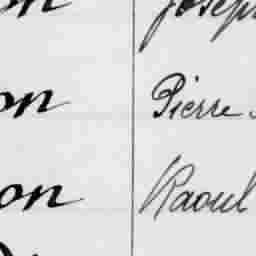 on Joseph
on Pierre
on Raoul